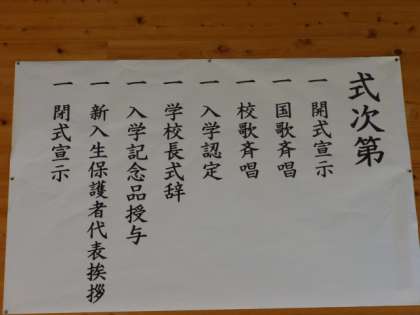 式次第
一 開式宣示
一 国歌斉唱
一 校歌斉唱
一 入学認定
一 学校長式辞
一 入学記念品授与
一 新入生保護者代表挨拶
一 閉式宣示